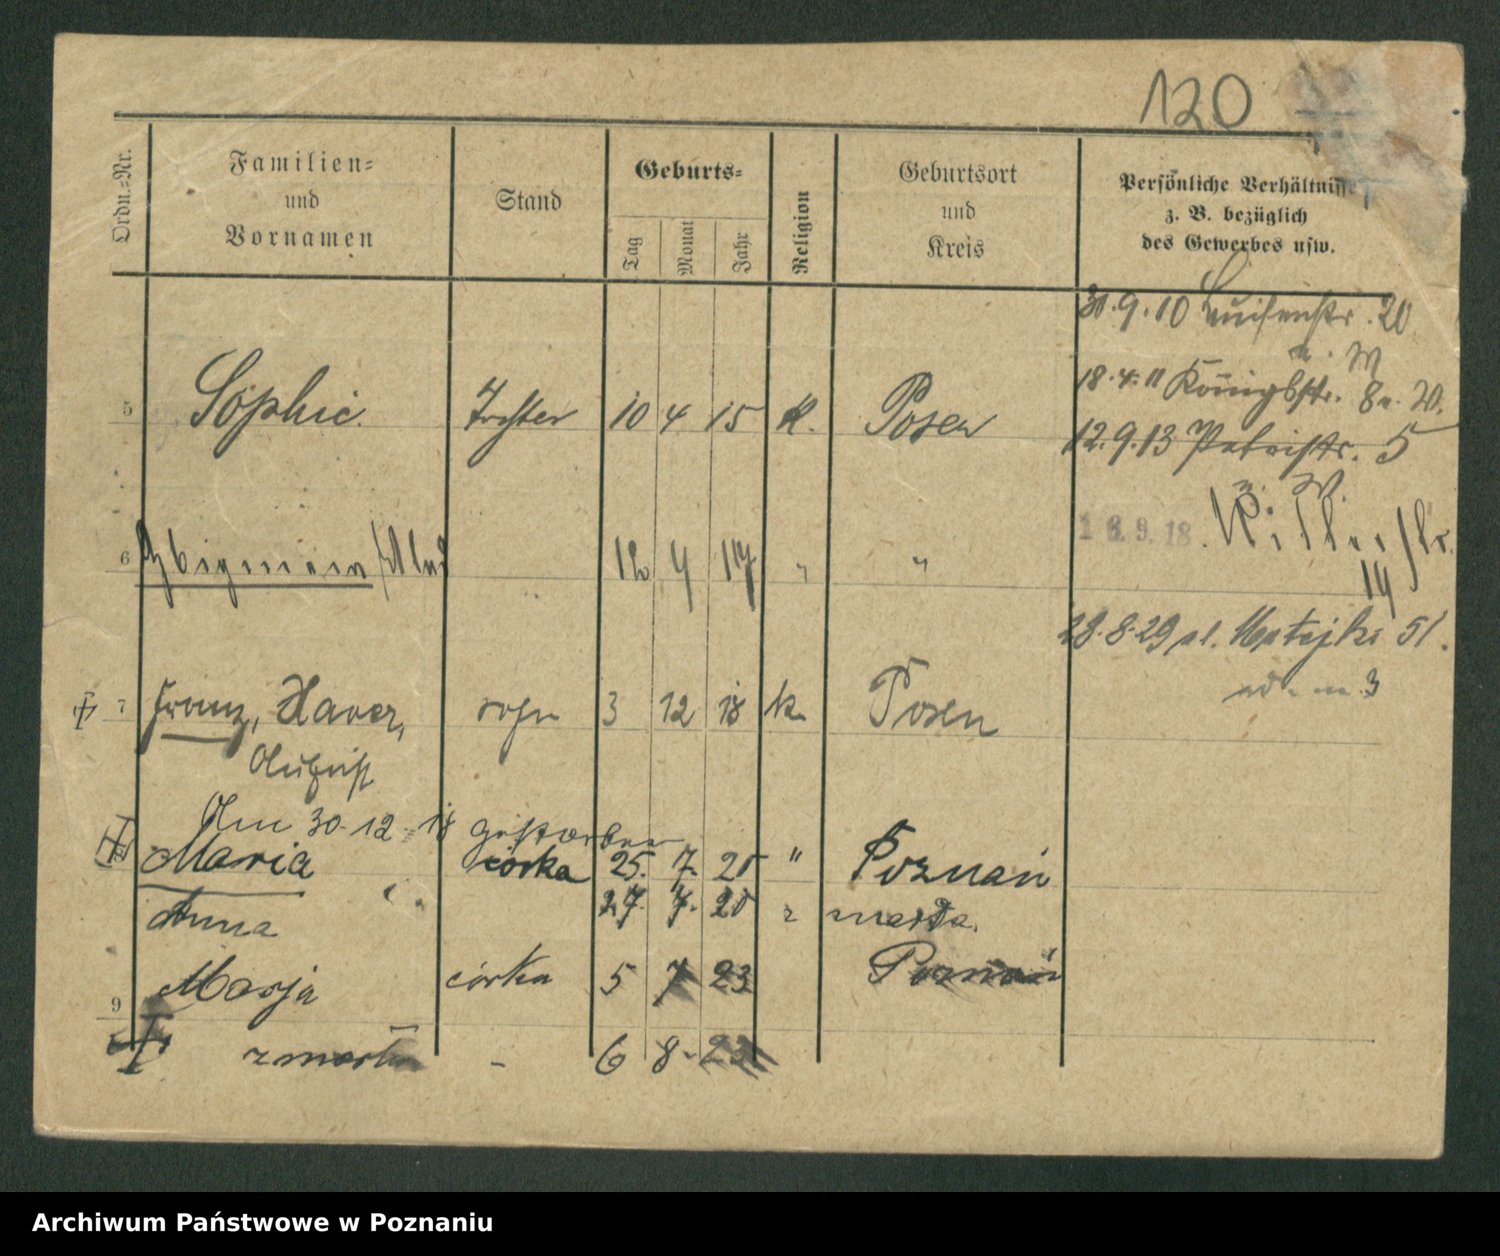 120
Ordn.-Nr.
Familien-
und
Vornamen
Stand
Geburts-
Tag
Monat
Jahr
Religion
Geburtsort
und
Kreis
Persönliche Verhältnisse
z. B. bezüglich
des Gewerbes usw.
30.9.10 Luisenstr. 20
u. W
18.4.11 Königstr. 8 u. W.
12.9.13 Patristr. 5
u. W.
18.9.18.
14
28.8.29 ul. Matejki 51.
3
5 Sophie. Tochter 10 4 15 K. Posen
6 Zbigniew 12 4 17 " "
7 Franz, Xaver, sohn 3 12 18 k. Posen
Am 30-12-18 gestorben
Maria córka 25. 7. 20 " Poznań
Anna 27. 7. 20 zmarła.
9 Marja córka 5 7 23 Poznań
zmarła - 6 8 - 23
Archiwum Państwowe w Poznaniu